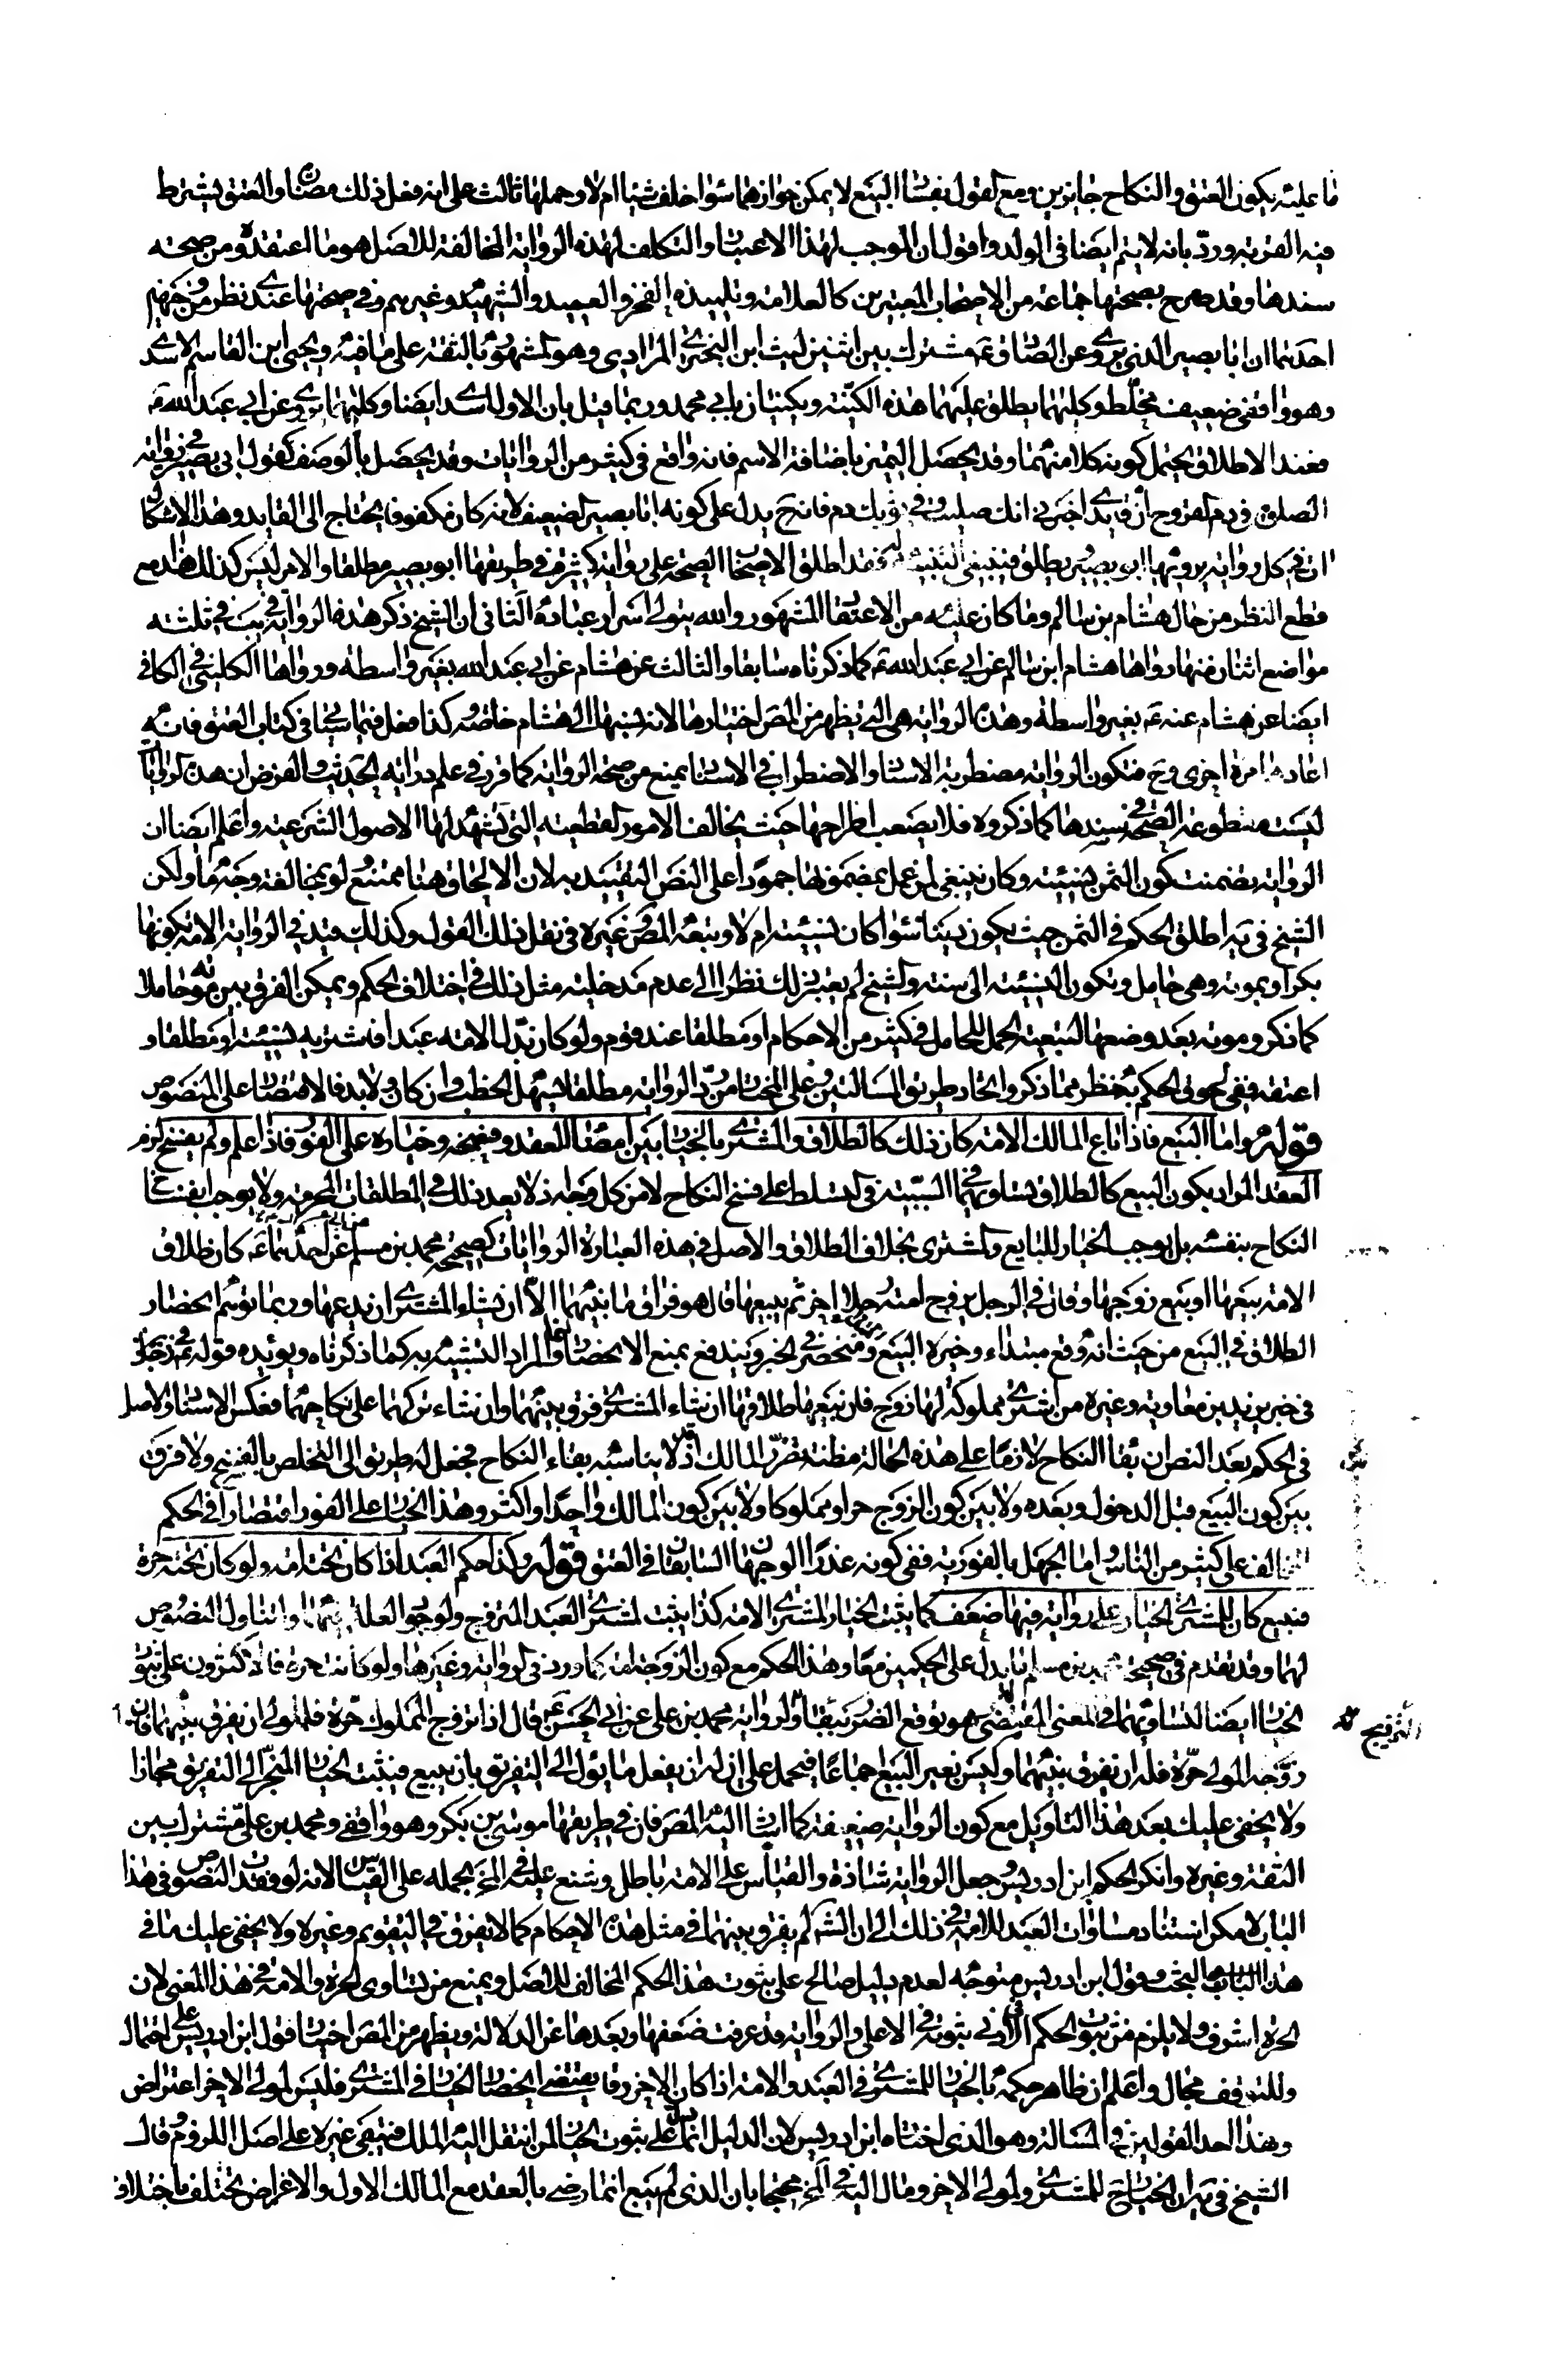 ما عليه يكون العتق والنكاح جايزين ومع القول بفساد البيع لا يمكن جوازهما سواء خلف شيئا ام لا وحملها ثالث على انه فعل ذلك مضارا والعتق يشترط
فيه القربة ورد بانه لا يتم ايضا في الولد واقول ان الموجب لهذا الاعتبار والتكلف لهذه الرواية المخالفة للاصل هو ما اعتقدوه من صحة
سندها وقد صرح بصحتها جماعة من الاصحاب المعتبرين كالعلامة وتلميذه الفخر والعميد والشهيد وغيرهم وفي صحتها عندي نظر من وجهين
احدهما ان ابا بصير الذي يروي عن الصادق ع مشترك بين اثنين ليث ابن البختري المرادي وهو المشهور بالثقة على ما فيه ويحيى ابن القاسم الاسدي
وهو واقفي ضعيف مخلط وكليهما يطلق عليهما هذه الكنية ويكنيان بابي محمد وربما قيل بان الاول اسدي ايضا وكليهما يروي عن ابي عبد الله ع
فعند الاطلاق يحتمل كونه كلا منهما وقد يحصل التميز باضافة الاسم فانه واقع في كثير من الروايات وقد يحصل بالوصف كقول ابي بصير في رواية
الصلوة في دم القروح ان قايدي اخبرني انك صليت وفي ثوبك دم فانه ح يدل على كونه ابا بصير الضعيف لانه كان مكفوفا يحتاج الى القايد وهذا الاشكال
ات في كل رواية يرويها ابو بصير بطلق فينبغي التنبيه له فقد اطلق الاصحاب الصحة على روايات كثيرة في طريقها ابو بصير مطلقا والامر ليس كذلك هذا مع
قطع النظر من حال هشام بن سالم وما كان عليه من الاعتقاد المشهور والله يتولى اسرار عباده الثاني ان الشيخ ذكر هذه الرواية في يب في ثلثة
مواضع اثنان منها رواها هشام ابن سالم عن ابي عبد الله ع كما ذكرناه سابقا والثالث عن هشام عن ابي عبد الله بغير واسطة ورواها الكليني في الكافي
ايضا عن هشام عنه ع بغير واسطة وهذه الرواية هي التي يظهر من المص اختيارها لانه نسبها الى هشام خاصة وكذا فعل فيما سيأتي في كتاب العتق فانه
اعادها مرة اخرى وح فتكون الرواية مضطربة الاسناد والاضطراب في الاسناد يمنع من صحة الرواية كما قرر في علم دراية الحديث والغرض ان هذه الرواية
ليست مقطوعة الصحة في سندها كما ذكروه فلا يصعب اطراحها حيث يخالف الامور القطعية التي تشهد لها الاصول الشرعية واعلم ايضا ان
الرواية تضمنت كون الثمن نسيئة وكان ينبغي لمن عمل بمضمونها جمودا على النص التقييد به لان الالحاق هنا ممتنع لو بمخالفة وجه ما ولكن
الشيخ في ية اطلق الحكم في الثمن حيث يكون دينا سواء كان نسيئة ام لا وتبعه المص وغيره في نقل ذلك القول وكذلك قيد في الرواية الامة بكونها
بكرا وبموته وهي حامل وتكون النسيئة الى سنة والشيخ لم يعتبر ذلك نظرا الى عدم مدخلية مثل ذلك في اختلاف الحكم ويمكن الفرق بين موته حاملا
كما ذكر وموته بعد وضعها لتبعية الحمل للحامل في كثير من الاحكام او مطلقا عند قوم ولو كان بدل الامة عبدا فاشتريه نسيئة او مطلقا و
اعتقه ففي لحوق الحكم به نظر مما ذكر واتحاد طريق المسالتين وعلى المختار من رد الرواية مطلقا يسهل الخطب وان كان ولا بد فالاقتصار على المنصوص
قوله واما البيع فاذا باع المالك الامة كان ذلك كالطلاق والمشتري بالخيار بين امضاء العقد وفسخه وخياره على الفور فاذا علم ولم يفسخ لزم
العقد المراد بكون البيع كالطلاق تساويهما في السببية في التسلط على فسخ النكاح لا من كل وجه اذ لا يعد ذلك في المطلقات المحرمة ولا يوجب انفساخ
النكاح بنفسه بل يوجب الخيار للبايع والمشتري بخلاف الطلاق والاصل في هذه العبارة الروايات كصحيحة محمد بن مسلم عن احدهما ع كان طلاق
الامة بيعها او بيع زوجها وقال في الرجل يزوج امته رجلا اخر ثم يبيعها قال هو فراق ما بينهما الا ان يشاء المشتري ان يدعها وربما توهم انحصار
الطلاق في البيع من حيث انه وقع مبتداء وخبره البيع وهو منحصر في الخبر ويندفع بمنع الانحصار اولا والمراد التشبيه به كما ذكرناه ويؤيده قوله ع
في خبر بريد بن معاوية وغيره من اشترى مملوكة لها زوج فان بيعها طلاقها ان شاء المشتري فرق بينهما وان شاء تركهما على نكاحهما فعكس الاسناد والاصل
في الحكم بعد النص ان بقاء النكاح لازما على هذه الحالة مظنة تضرر المالك اذ قد لا يناسبه بقاء النكاح فجعل له طريق الى التخلص بالفسخ ولا فرق
بين كون البيع قبل الدخول وبعده ولا بين كون الزوج حرا ومملوكا ولا بين كون المالك واحدا او اكثر وهذا الخيار على الفور اقتصارا في الحكم
المخالف على كثير من الناس واما الجهل بالفورية ففي كونه عذرا الوجهان السابقان في العتق قوله وكذا حكم العبد اذا كان تحته امة ولو كان تحته حرة
فبيع كان للمشتري الخيار على رواية فيها ضعف كما يثبت الخيار لمشتري الامة كذا يثبت لمشتري العبد المتزوج ولوجود العلة فيهما وتناول النصوص
لهما وقد تقدم في صحيحة محمد بن مسلم ما يدل على الحكمين معا وهذا الحكم مع كون الزوجة امة كما ورد في الرواية وغيرها ولو كانت حرة فالاكثرون على ثبوت
الخيار ايضا لتساويهما في المعنى المقتضي له وهو توقع الضرر ببقائه ولرواية محمد بن علي عن ابي الحسن ع قال اذا تزوج المملوك حرة فللمولى ان يفرق بينهما فان
زوجه المولى حرة فله ان يفرق بينهما وليس بغير البيع اجماعا فيحمل على ان له ان يفعل ما يئول الى التفريق بان يبيع فيثبت الخيار المنجر الى التفريق مجازا
ولا يخفى عليك بعد هذا التاويل مع كون الرواية ضعيفة كما اشار اليه المص فان في طريقها موسى بن بكر وهو واقفي ومحمد بن علي مشترك بين
الثقة وغيره وانكر الحكم ابن ادريس وجعل الرواية شاذة والقياس على الامة باطل وشنع عليه في المخ بحمله على القياس لانه لو فقد النصوص في هذا
الباب لامكن استناد مساوات العبد للامة في ذلك الى ان الش لم يفرق بينهما في مثل هذه الاحكام كما لا يفرق في التقويم وغيره ولا يخفى عليك ما في
هذا الباب والبحث وقول ابن ادريس متوجه لعدم دليل صالح على ثبوت هذا الحكم المخالف للاصل ويمنع من تساوي الحرة والامة في هذا المعنى لان
الحرة اشرف ولا يلزم من ثبوت الحكم في الادنى ثبوته في الاعلى والرواية قد عرفت ضعفها وبعدها عن الدلالة ويظهر من المص اختيار قول ابن ادريس على احتمال
وللتوقف مجال واعلم ان ظاهر حكمه بالخيار للمشتري في العبد والامة اذا كان الاخر رقا يقتضي انحصار الخيار في المشتري فليس لمولى الاخر اعتراض
وهذا احد القولين في المسالة وهو الذي اختاره ابن ادريس لان الدليل انما دل على ثبوت الخيار لمن انتقل اليه الملك فيبقى غيره على اصل اللزوم وقال
الشيخ في ية ان الخيار ح للمشتري ولمولى الاخر ومال اليه في المخ محتجا بان الذي لم يبع انما رضي بالعقد مع المالك الاول والاغراض تختلف باختلاف